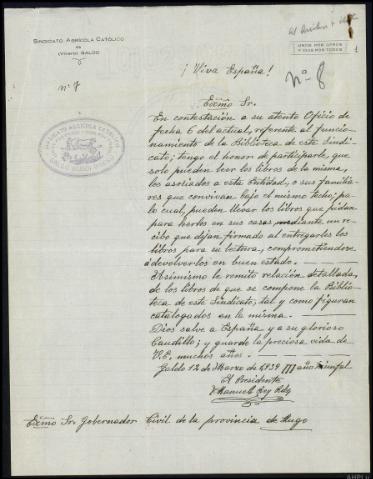 SINDICATO AGRÍCOLA CATÓLICO
DE
GALDO
UNOS POR OTROS
Y DIOS POR TODOS
1
nº 7
¡Viva España!
Nº 8
SINDICATO AGRÍCOLA CATÓLICO
Excmo Sr.
En contestación a su atento Oficio de
fecha 6 del actual, referente al funcio-
namiento de la Biblioteca de este Sindi-
cato; tengo el honor de participarle, que
solo pueden leer los libros de la misma,
los asociados a esta Entidad, o sus familia-
res que convivan bajo el mismo techo; pa-
lo cual, pueden llevar los libros que pidan
para leerlos en sus casas, mediante un re-
cibo que dejan firmado al entregarles los
libros para su lectura, comprometiéndose
a devolverlos en buen estado.
Asimismo le remito relación detallada,
de los libros de que se compone la Biblio-
teca de este Sindicato, tal y como figuran
catalogados en la misma.
Dios salve a España y a su glorioso
Caudillo; y guarde la preciosa vida de
V.E. muchos años.
Galdo 12 de Marzo de 1939 III año triunfal
El Presidente
Manuel Rey
Excmo Sr. Gobernador Civil de la provincia de Lugo